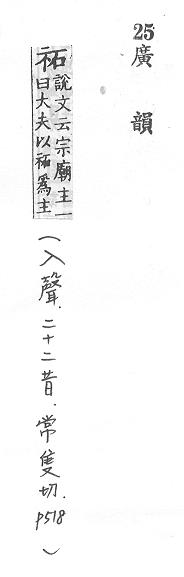 25
廣韻
祏說文云宗廟主一
曰大夫以祏爲主
(入聲.二十二昔.常隻切.P518)